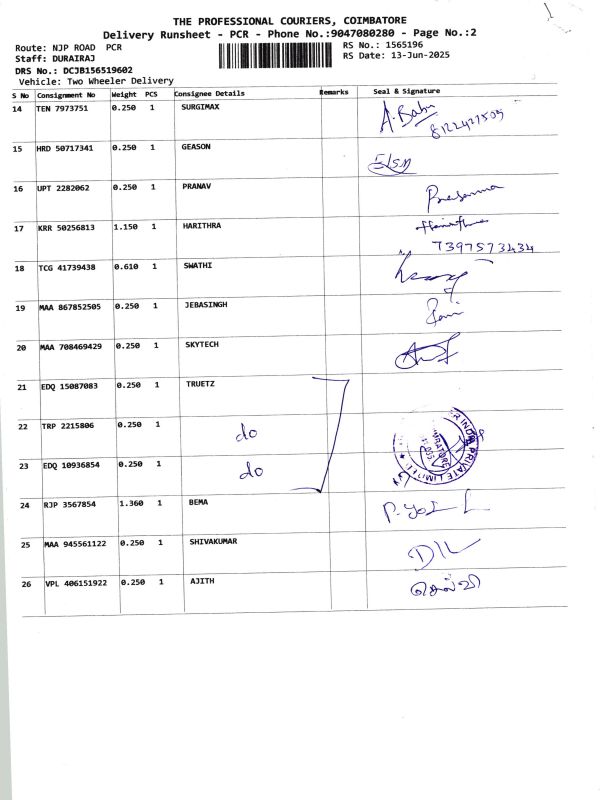 THE PROFESSIONAL COURIERS, COIMBATORE
Delivery Runsheet - PCR - Phone No.:9047080280 - Page No.:2
Route: NJP ROAD PCR
RS No.: 1565196
Staff: DURAIRAJ
RS Date: 13-Jun-2025
DRS No.: DCJB156519602
Vehicle: Two Wheeler Delivery
S No Consignment No Weight PCS Consignee Details Remarks Seal & Signature
14 TEN 7973751 0.250 1 SURGIMAX A.Babu
8122427509
15 HRD 50717341 0.250 1 GEASON
16 UPT 2282062 0.250 1 PRANAV Prasanna
17 KRR 50256813 1.150 1 HARITHRA
7397573434
18 TCG 41739438 0.610 1 SWATHI
19 MAA 867852505 0.250 1 JEBASINGH
20 MAA 708469429 0.250 1 SKYTECH
21 EDQ 15087083 0.250 1 TRUETZ
22 TRP 2215806 0.250 1 do
23 EDQ 10936854 0.250 1 do
INDIA PRIVATE LIMITED
24 RJP 3567854 1.360 1 BEMA
25 MAA 945561122 0.250 1 SHIVAKUMAR
26 VPL 406151922 0.250 1 AJITH செல்வி